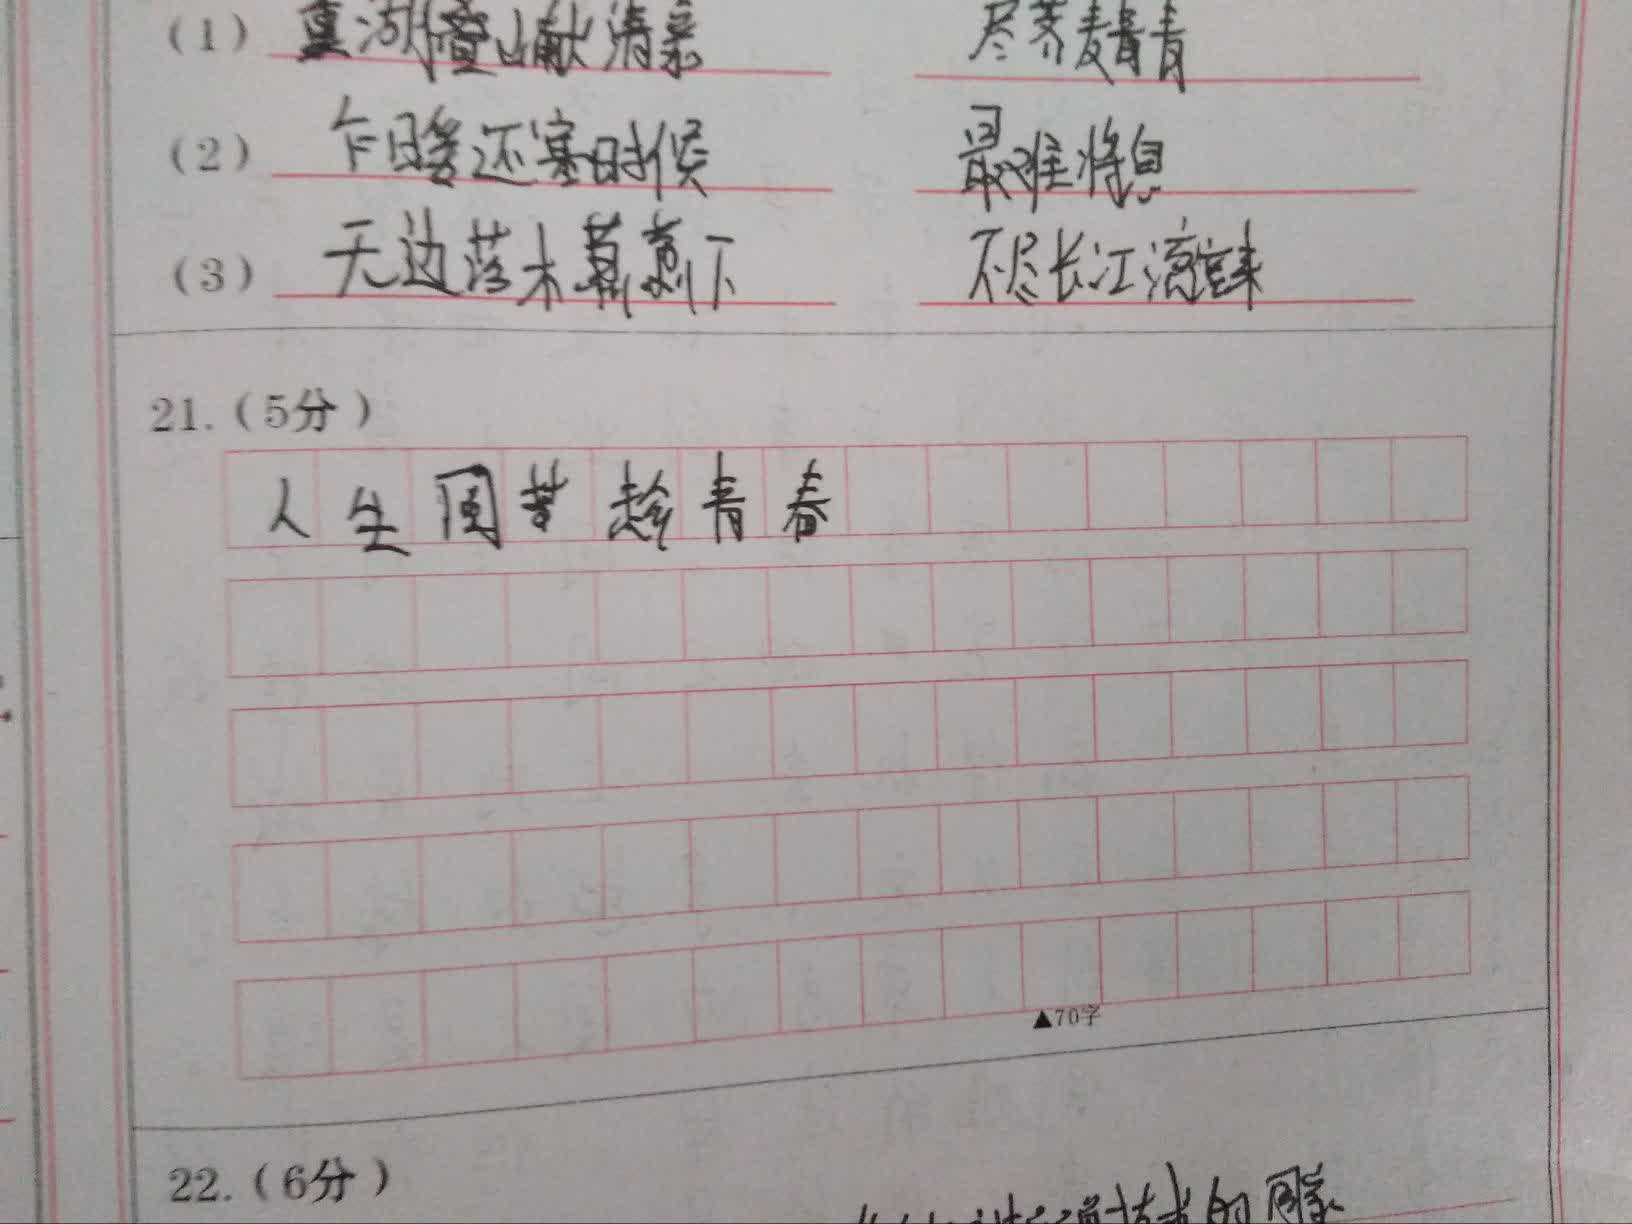 (1) 重湖叠巘清嘉 尽荠麦青青
(2) 乍暖还寒时候 最难将息
(3) 无边落木萧萧下 不尽长江滚滚来
21.(5分)
人生因梦趁青春
▲70字
22.(6分)
的国家